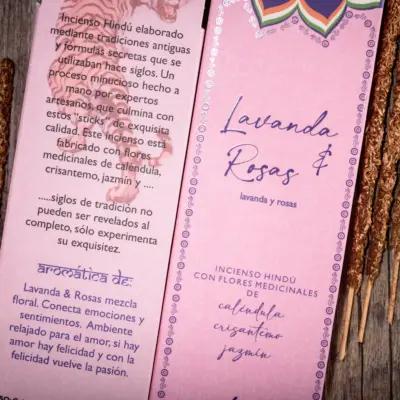 Incienso Hindú elaborado
mediante tradiciones antiguas
y formulas secretas que se
utilizaban hace siglos. Un
proceso minucioso hecho a
mano por expertos
artesanos, que culmina con
estos "sticks" de exquisita
calidad. Este incienso está
fabricado con flores
medicinales de caléndula,
crisantemo, jazmín y ....
.....siglos de tradición no
pueden ser revelados al
completo, sólo experimenta
su exquisitez.
aromática de:
Lavanda & Rosas mezcla
floral. Conecta emociones y
sentimientos. Ambiente
relajado para el amor, si hay
amor hay felicidad y con la
felicidad vuelve la pasión.
Lavanda
&
Rosas
lavanda y rosas
INCIENSO HINDÚ
CON FLORES MEDICINALES
DE
caléndula
crisantemo
jazmín